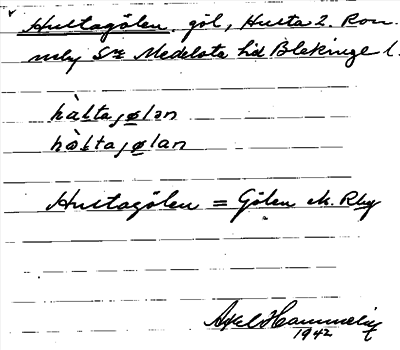 Hultagölen, göl, Hulta 2. Ron-
neby Sn Medelsta hd Blekinge l.
hàlta,ɉølən
hòlta,ɉølan
Hultagölen = Gölen
Axel Hammelin
1942